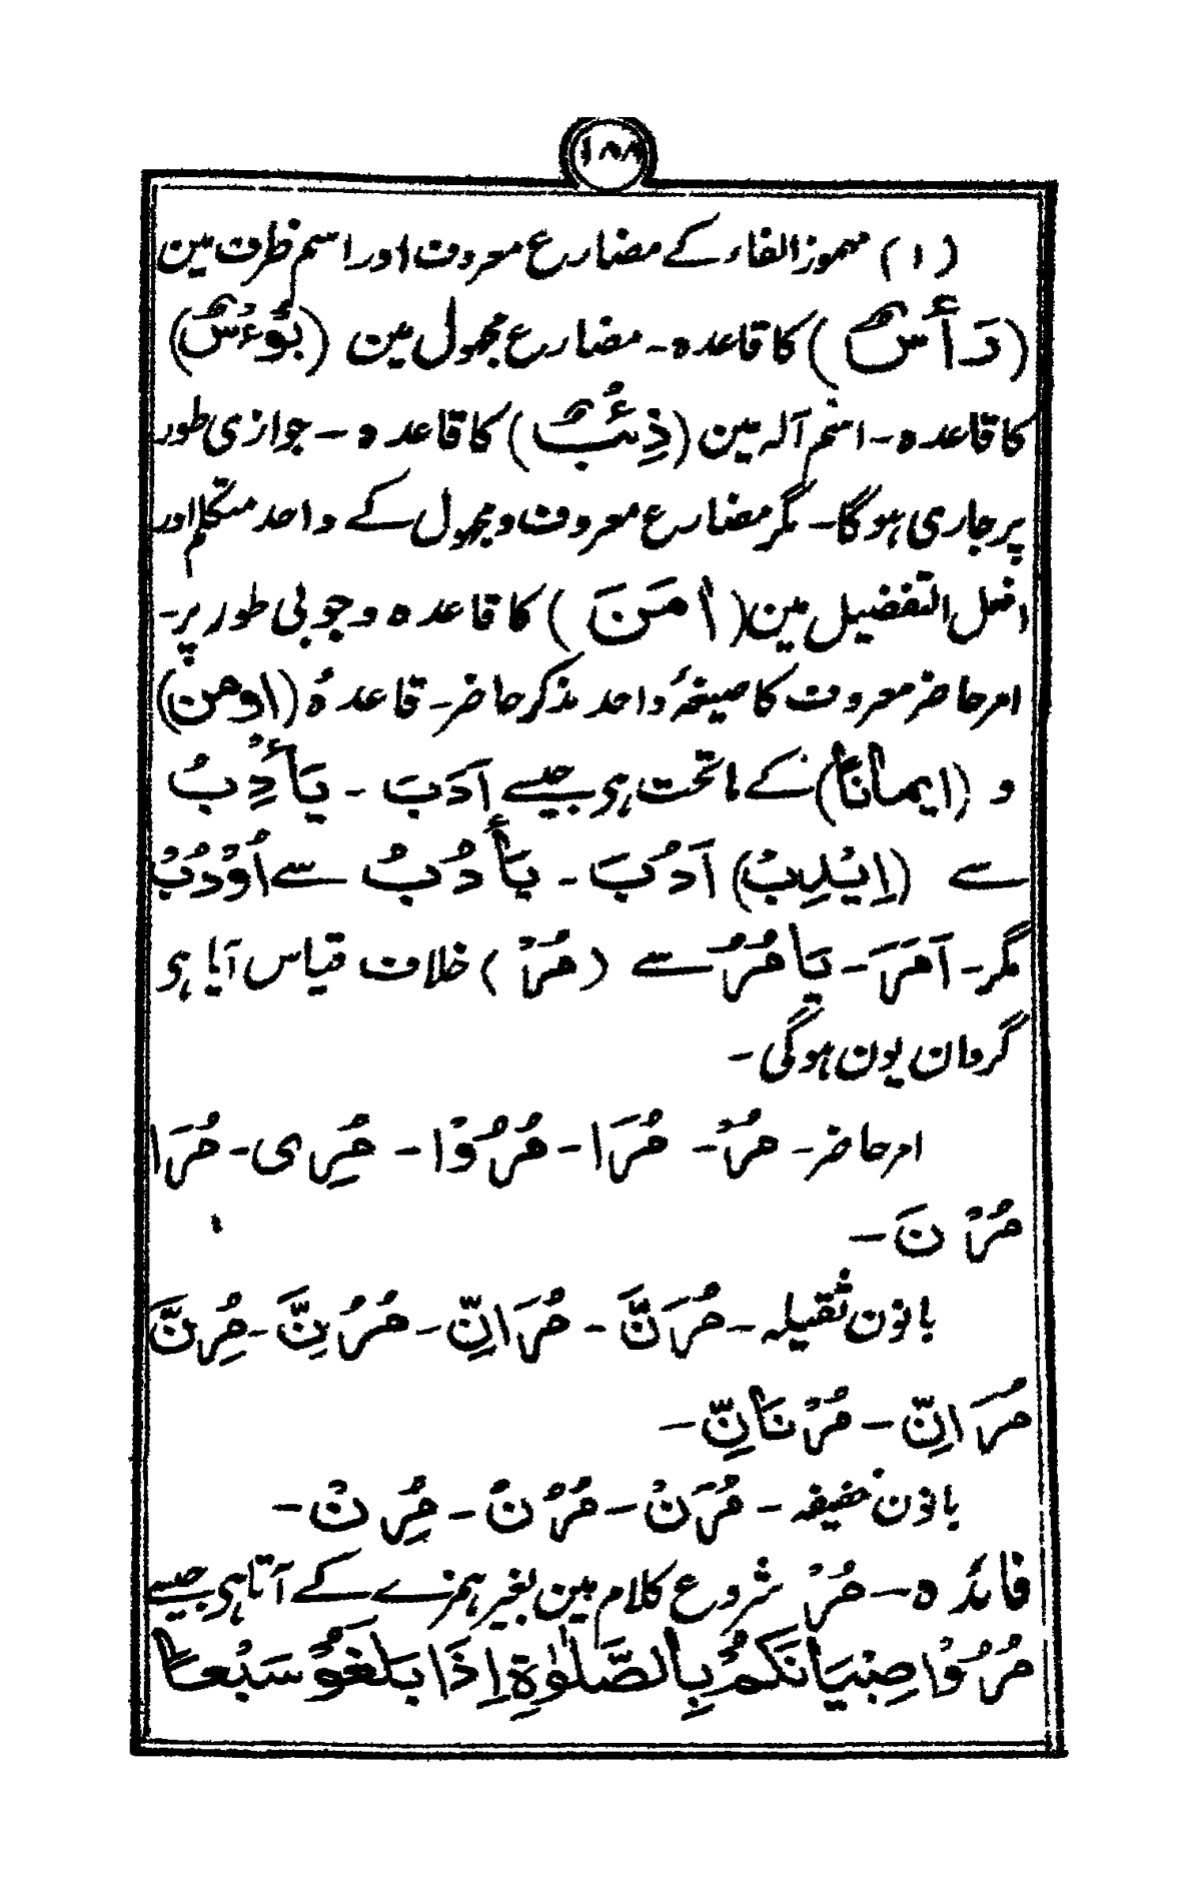 ۱۸۸
(۱) مہموز الفاء کے مضارع معروف اور اسم ظرف مین
(رَأْسٌ) کا قاعدہ۔ مضارع مجہول مین (بُؤْسٌ)
کا قاعدہ۔ اسم آلہ مین (ذِئْبٌ) کا قاعدہ۔ جوازی طور
پر جاری ہوگا۔ مگر مضارع معروف و مجہول کے واحد متکلم اور
افعل التفضیل مین (اٰمَنَ) کا قاعدہ وجوبی طور پر۔
امر حاضر معروف کا صیغۂ واحد مذکر حاضر۔ قاعدۂ (اومن)
و (ایمانًا) کے ماتحت ہی جیسے اَدَبَ ۔ یَأْدِبُ
سے (اِیْدِبْ) اَدُبَ ۔ یَأْدُبُ سے اُوْدُبْ
مگر۔ اَمَرَ۔ یَأمُرُ سے (مُرْ) خلاف قیاس آیا ہی
گردان یون ہوگی۔
امر حاضر۔ مُرْ۔ مُرَا۔ مُرُوْا۔ مُرِی۔ مُرَا
مُرْنَ۔
بانون ثقیلہ۔ مُرَنَّ۔ مُرَانِّ۔ مُرُنَّ۔ مُرِنَّ
مُرَانِّ۔ مُرْنَانِّ۔
بانون خفیفہ۔ مُرَنْ۔ مُرُنْ۔ مُرِنْ۔
فائدہ۔ مُرْ شروع کلام مین بغیر ہمزے کے آتا ہی جیسے
مُرُوْا صِبْیَانَکُمْ بِالصَّلٰوۃِ اِذَا بَلَغُوْ سَبْعًا